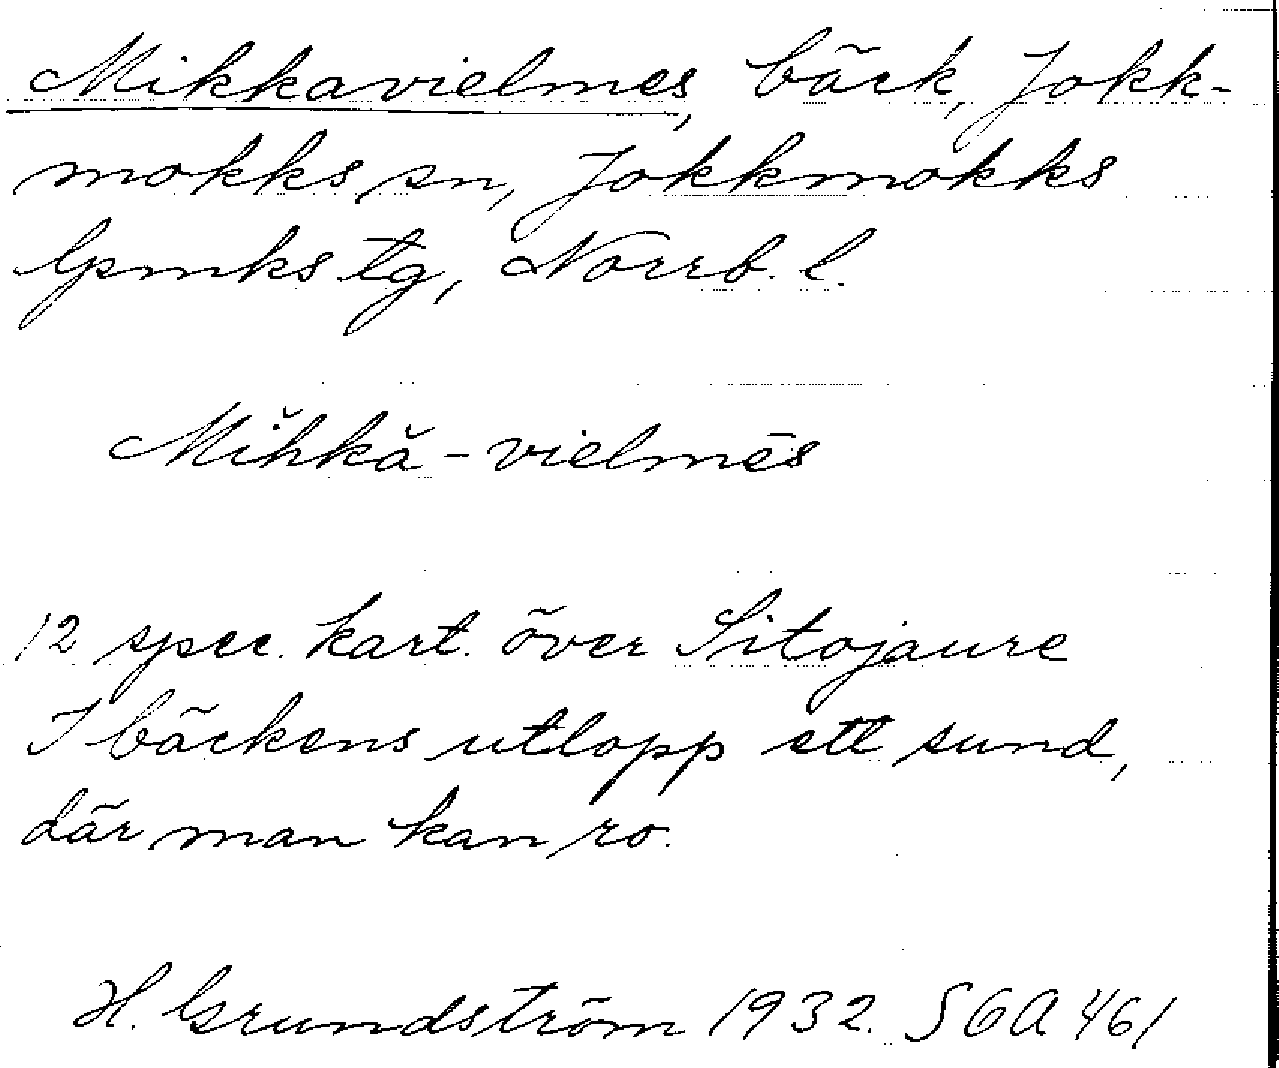 Mikkavielmes, bäck, Jokk-
mokks sn, Jokkmokks
lpmks tg, Norrb. l.
Mĭhkă-vielmēs
12 spec. kart. över Sitojaure
I bäckens utlopp ett sund,
där man kan ro.
H. Grundström 1932. SGA 461